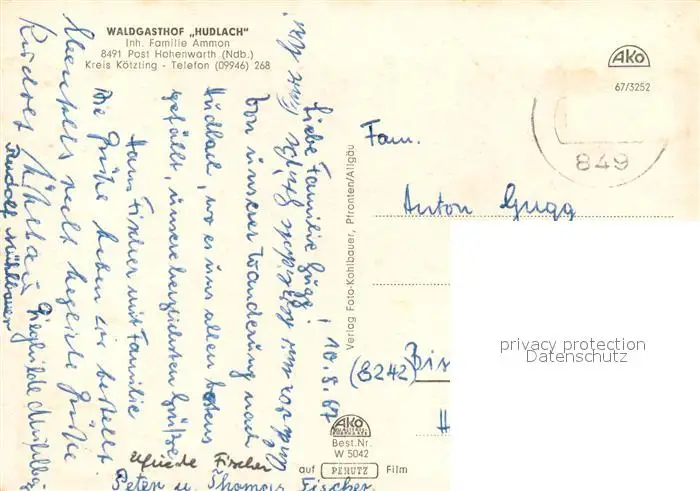 WALDGASTHOF „HUDLACH"
Inh. Familie Ammon
8491 Post Hohenwarth (Ndb.)
Kreis Kötzting - Telefon (09946) 268
AKO
67/3252
849
Fam.
Anton Gugg
(8242) Bis
H
privacy protection
Datenschutz
Verlag Foto-Kohlbauer, Pfronten/Allgäu
AKO
Best.Nr.
W 5042
auf PERUTZ Film
10.8.67
Liebe Familie Gugg!
Von unserer Wanderung nach
Hudlach, wo es uns allen bestens
gefällt, unsere herzlichsten Grüße
Hans Fischer mit Familie
Die Grüße haben wir bestellt
Ebenfalls recht herzliche Grüße
Rudolf Mühlbauer
Sieghilde Mühlbauer
Elfriede Fischer
Peter u. Thomas Fischer